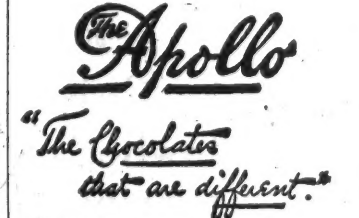 The
Apollo
"The Chocolates
that are different."